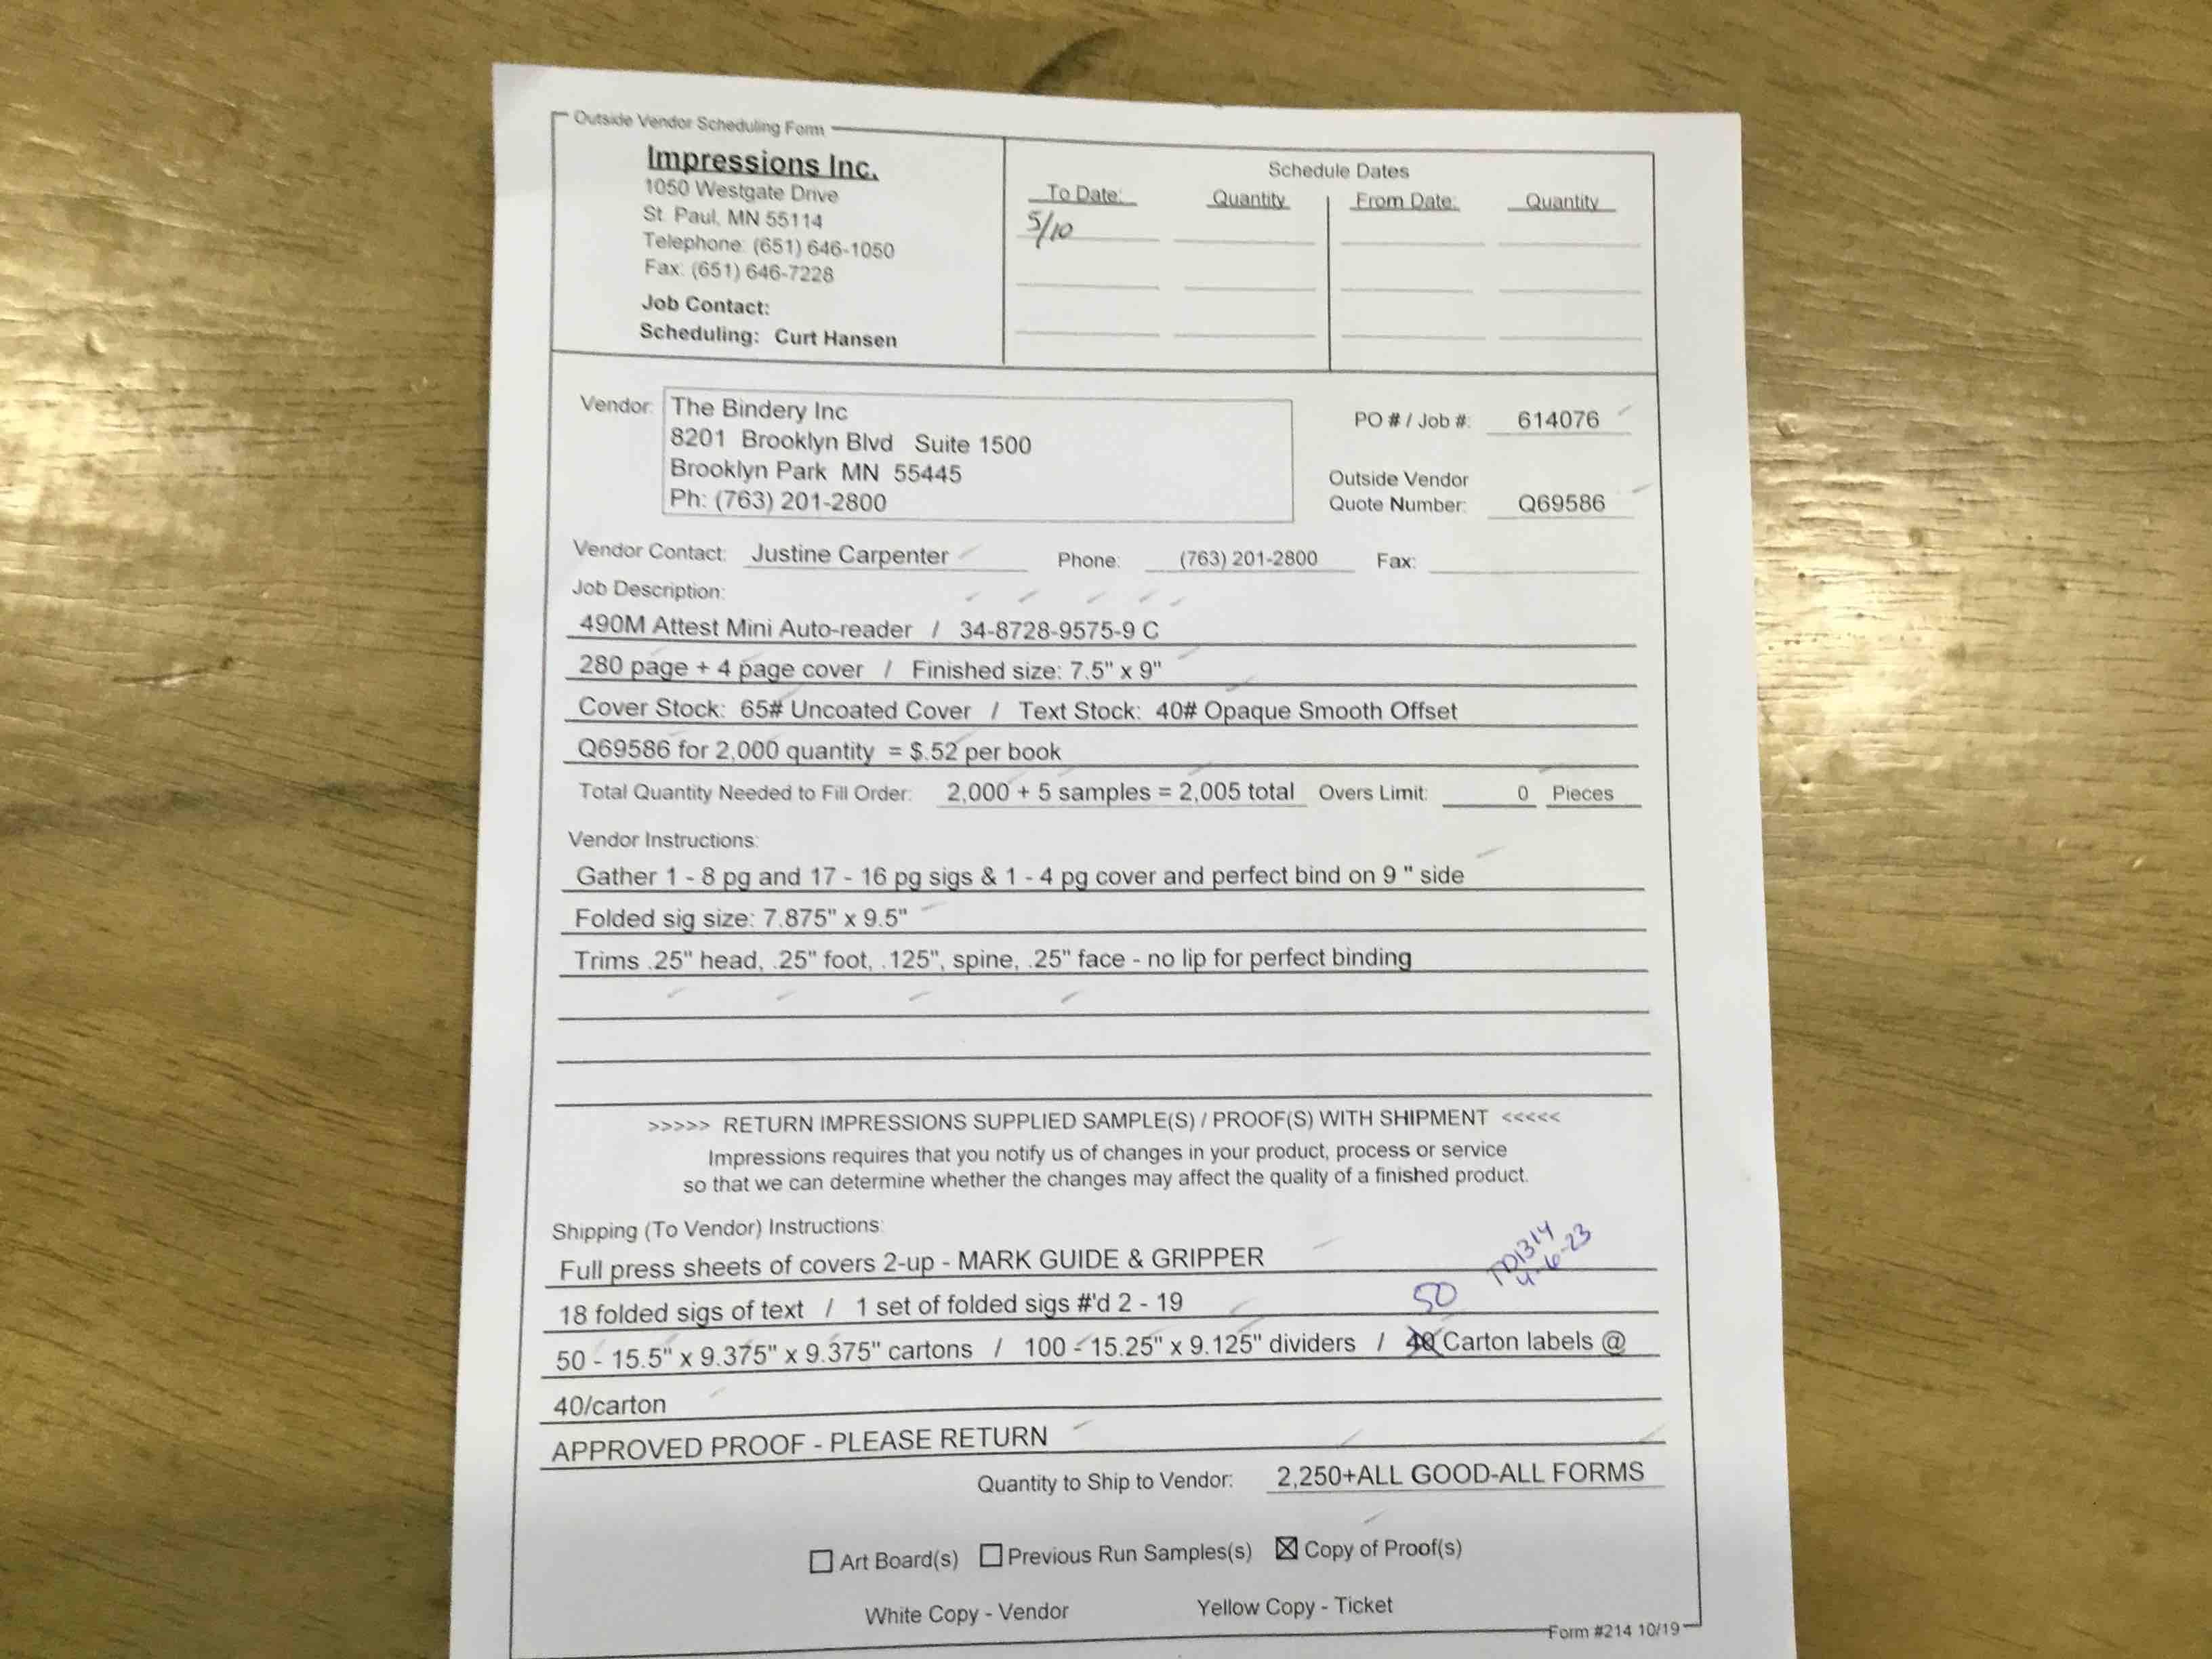 Outside Vendor Scheduling Form
Impressions Inc.
1050 Westgate Drive
St. Paul, MN 55114
Telephone: (651) 646-1050
Fax: (651) 646-7228
Job Contact:
Scheduling: Curt Hansen
Schedule Dates
To Date: Quantity From Date: Quantity
5/10
Vendor: The Bindery Inc
8201 Brooklyn Blvd Suite 1500
Brooklyn Park MN 55445
Ph: (763) 201-2800
PO # / Job #: 614076
Outside Vendor
Quote Number: Q69586
Vendor Contact: Justine Carpenter Phone: (763) 201-2800 Fax:
Job Description:
490M Attest Mini Auto-reader / 34-8728-9575-9 C
280 page + 4 page cover / Finished size: 7.5" x 9"
Cover Stock: 65# Uncoated Cover / Text Stock: 40# Opaque Smooth Offset
Q69586 for 2,000 quantity = $.52 per book
Total Quantity Needed to Fill Order: 2,000 + 5 samples = 2,005 total Overs Limit: 0 Pieces
Vendor Instructions:
Gather 1 - 8 pg and 17 - 16 pg sigs & 1 - 4 pg cover and perfect bind on 9 " side
Folded sig size: 7.875" x 9.5"
Trims .25" head, .25" foot, .125", spine, .25" face - no lip for perfect binding
>>>>> RETURN IMPRESSIONS SUPPLIED SAMPLE(S) / PROOF(S) WITH SHIPMENT <<<<<
Impressions requires that you notify us of changes in your product, process or service
so that we can determine whether the changes may affect the quality of a finished product.
Shipping (To Vendor) Instructions:
TD1314
4-6-23
Full press sheets of covers 2-up - MARK GUIDE & GRIPPER
50
18 folded sigs of text / 1 set of folded sigs #'d 2 - 19
50 - 15.5" x 9.375" x 9.375" cartons / 100 - 15.25" x 9.125" dividers / 40 Carton labels @
40/carton
APPROVED PROOF - PLEASE RETURN
Quantity to Ship to Vendor: 2,250+ALL GOOD-ALL FORMS
Art Board(s) Previous Run Samples(s) Copy of Proof(s)
White Copy - Vendor Yellow Copy - Ticket
Form #214 10/19